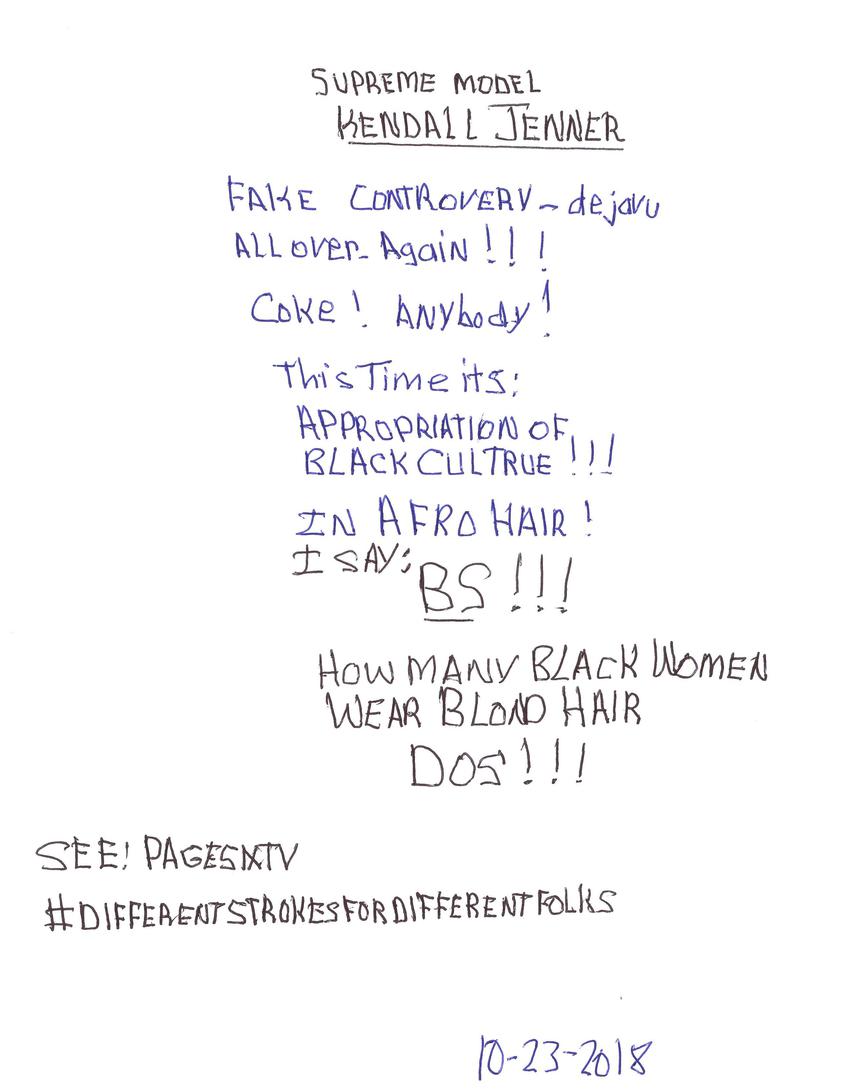 SUPREME MODEL
KENDALL JENNER
FAKE CONTROVERY - dejavu
ALL over Again!!!
Coke! ANybody!
This Time its:
APPROPRIATION OF
BLACK CULTRUE!!!
IN AFRO HAIR!
I SAY:
BS!!!
HOW MANY BLACK WOMEN
WEAR BLOND HAIR
DOS!!!
SEE! PAGESIXTV
#DIFFERENTSTROKESFORDIFFERENTFOLKS
10-23-2018